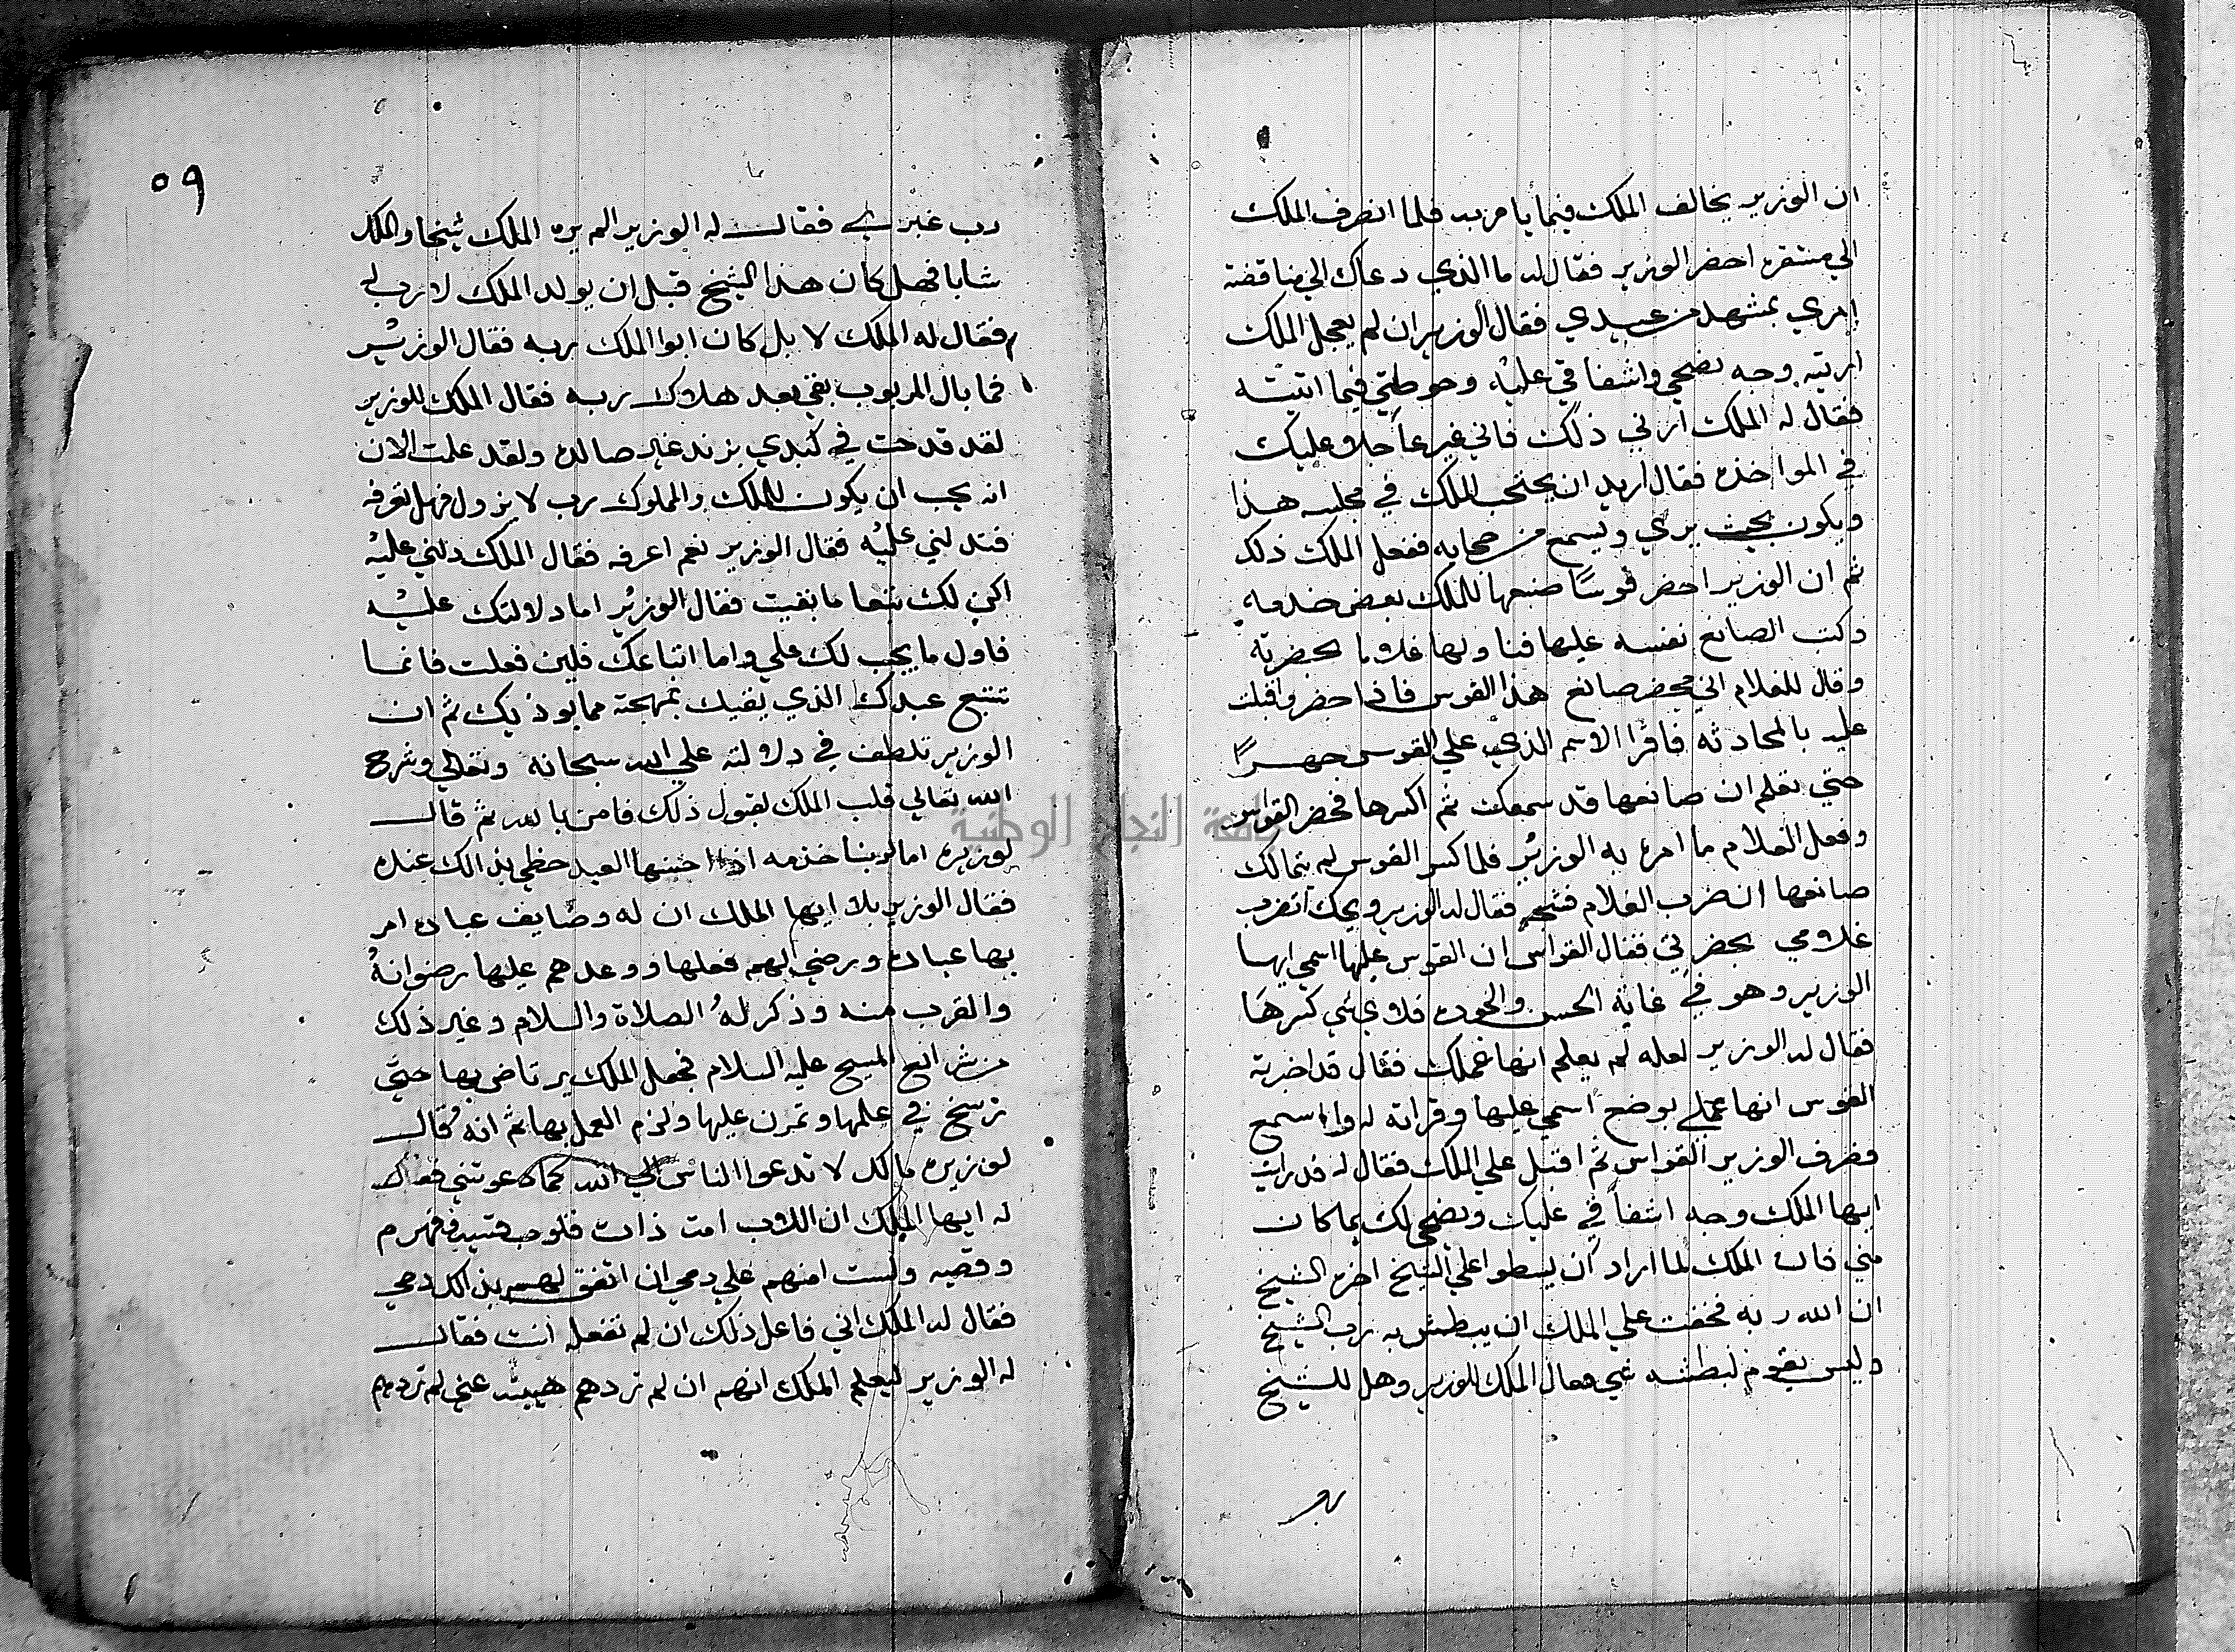 ان الوزير يخالف الملك فيما يامر به فلما انصرف الملك
الي مستقره احضر الوزير فقال له ما الذي دعاك الي مناقضة
امري بمشهد من عبيدي فقال الوزير ان لم يعجل الملك
اريته وجه نصحي واشفاقي عليه وحوطتي فيما اتيته
فقال له الملك ارني ذلك فاني غير عاجلا عليك
في المواخذه فقال اريد ان يحتجب الملك في مجلسه هذا
ويكون بحيث يري ويسمع من حجابه ففعل الملك ذلك
ثم ان الوزير احضر قوسًا صنعها للملك بعض خدمه
وكتب الصانع نفسه عليها فناولها غلاما بحضرته
وقال للغلام اني محضر صانع هذا القوس فاذا حضر واقبلت
عليه بالمحادثه فاقرا الاسم الذي علي القوس جهرًا
حتي تعلم ان صانعها قد سمعك ثم اكسرها فحضر القواس
وفعل الغلام ما امره به الوزير فلما كسر القوس لم يتمالك
صانعها ان ضرب الغلام فشجه فقال له الوزير ويحك اتضرب
غلامي بحضرتي فقال القواس ان القوس عليها اسمي ايها
الوزير وهو في غاية الحسن والجوده فلاي شي كسرها
فقال له الوزير لعله لم يعلم انها عملك فقال قد اخبرته
القوس انها عملي بوضع اسمي عليها وقراته له واسمع
فصرف الوزير القواس ثم اقبل علي الملك فقال له قد رايت
ايها الملك وجه اشفاقي عليك ونصحي لك بما كان
مني فان الملك لما اراد ان يسطوا علي الشيخ اخبره الشيخ
ان الله ربه فخفت علي الملك ان يبطش به رب الشيخ
وليس يقوم لبطشه شي فقال الملك للوزير وهل للشيخ
٥٩
رب غيري فقال له الوزير الم يره الملك شيخا والملك
شابا فهل كان هذا الشيخ قبل ان يولد الملك لا رب له
فقال له الملك لا بل كان ابوا الملك ربه فقال الوزير
فما بال المربوب بقي بعد هلاك ربه فقال الملك للوزير
لقد قدحت في كبدي بزند غير صالده ولقد علمت الان
انه يجب ان يكون للملك والمملوك رب لا يزول فهل تعرفه
فتدلني عليه فقال الوزير نعم اعرفه فقال الملك دلني عليه
اكن لك تبعا ما بقيت فقال الوزير اما دلالتك عليه
فاول ما يجب لك علي واما اتباعك فلين فعلت فانما
تتبع عبدك الذي يقيك بمهجته مما يوذيك ثم ان
الوزير تلطف في دلالته علي الله سبحانه وتعالي وشرح
الله تعالي قلب الملك لقبول ذلك فامن بالله ثم قال
لوزيره اما لربنا خدمه اذا احسنها العبد حظي بذالك عنده
فقال الوزير بلا ايها الملك ان له وضايف عباده امر
بها عباده ورضي لهم فعلها ووعدهم عليها رضوانه
والقرب منه وذكر له الصلاة والسلام وغير ذلك
من شرايع المسيح عليه السلام فجعل الملك يرتاض بها حتي
رسخ في علمها وتمرن عليها ولزم العمل بها ثم انه قال
لوزيره مالك لا تدعوا الناس الي الله كما دعوتني فقال
له ايها الملك ان اللاب امت ذات قلوب فهم
وقصيه ولست امنهم علي دمي ان اتفق لهم بذالك دمي
فقال له الملك اني فاعل ذلك ان لم تفعله انت فقال
له الوزير ليعلم الملك انهم ان لم تردهم هيبته عني لم تردهم